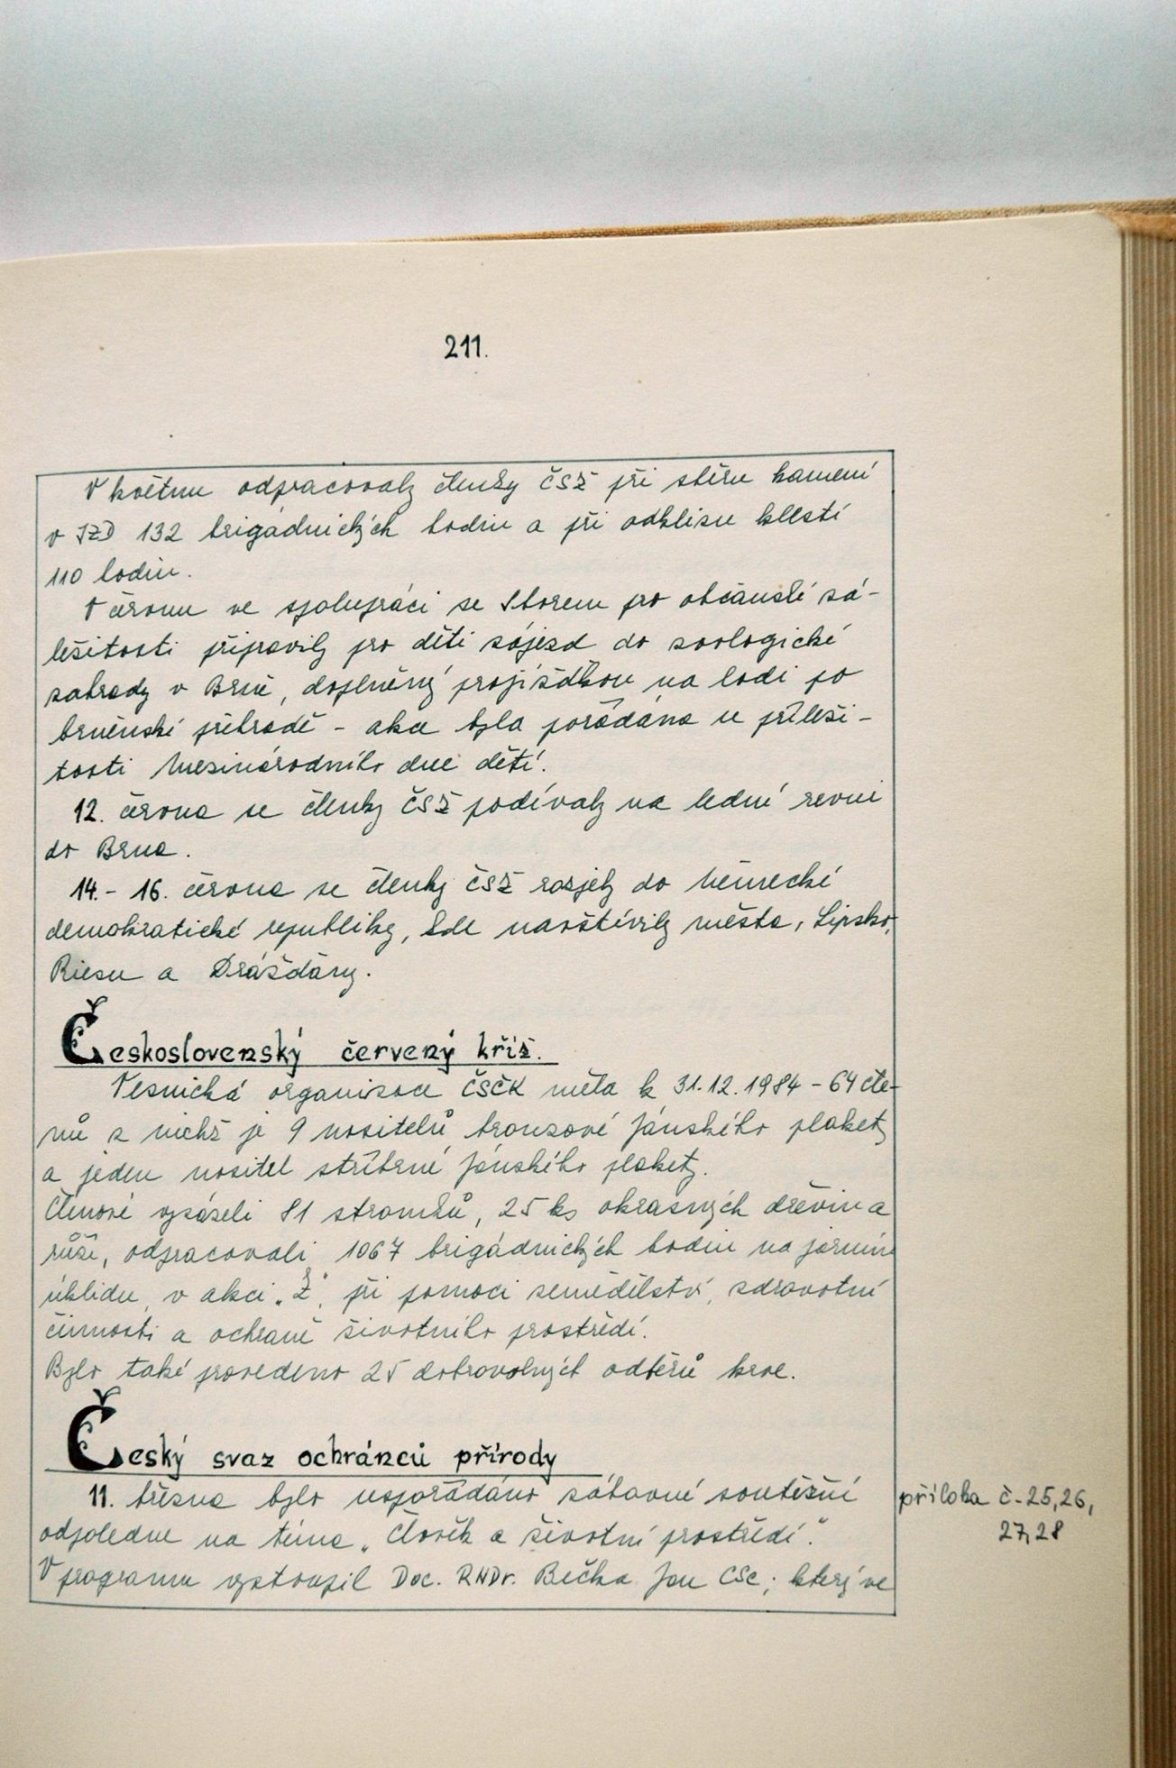 211.
V květnu odpracovaly členky ČSŽ při sběru kamení
v JZD 132 brigádnických hodin a při odklisu klestí
110 hodin.
V červnu ve spolupráci se Sborem pro občanské zá-
ležitosti připravily pro děti zájezd do zoologické
zahrady v Brně, doplněný projížďkou na lodi po
brněnské přehradě - akce byla pořádána u příleži-
tosti Mezinárodního dne dětí.
12. června se členky ČSŽ podívaly na lední revui
do Brna.
14.- 16. června se členky ČSŽ rozjely do Německé
demokratické republiky, kde navštívily města, Lipsko,
Riesu a Drážďany.
Československý červený kříž.
Vesnická organizace ČSČK měla k 31.12.1984 - 64 čle-
nů z nichž je 9 nositelů bronzové Jánského plakety
a jeden nositel stříbrné Jánského plakety.
Členové vysázeli 81 stromků, 25 ks okrasných dřevin a
růže, odpracovali 1067 brigádnických hodin na jarním
úklidu, v akci „Z“, při pomoci zemědělství, zdravotní
činnosti a ochraně životního prostředí.
Bylo také provedeno 25 dobrovolných odběrů krve.
Český svaz ochránců přírody
11. března bylo uspořádáno zábavné soutěžní
příloha č. 25, 26,
odpoledne na téma „Člověk a životní prostředí.“
27, 28
V programu vystoupil Doc. RNDr. Bečka Jan CSc; který ve